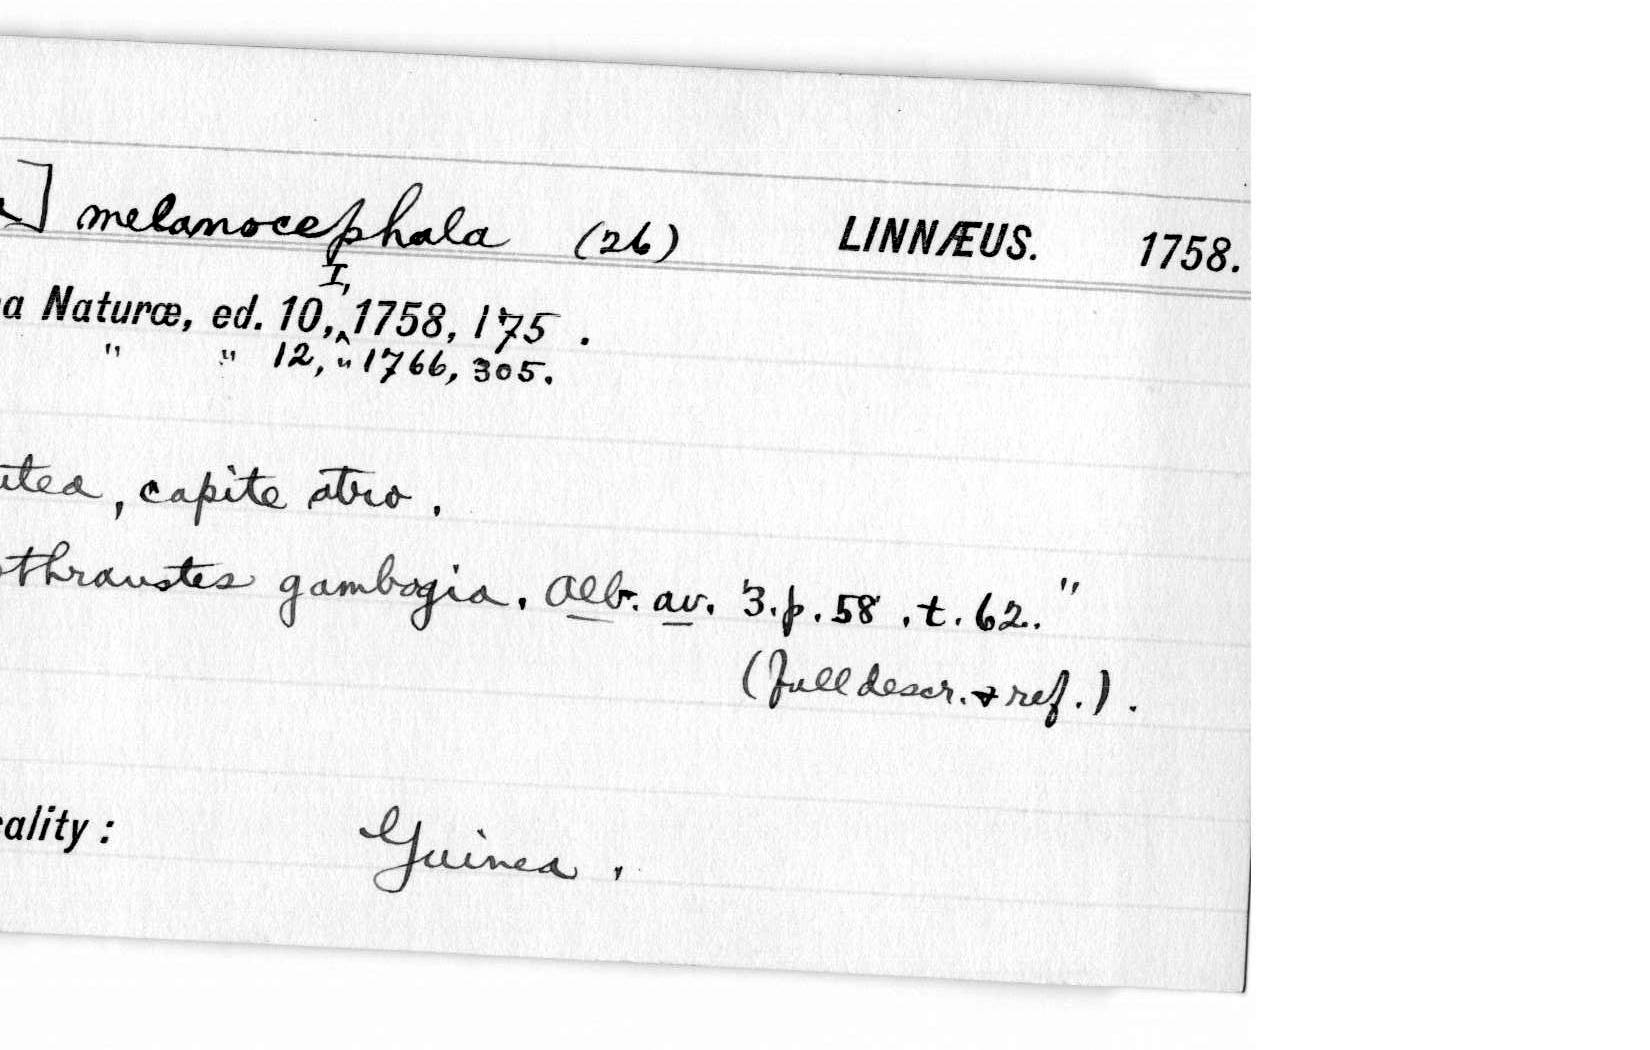 ] melanocephala (26) LINNÆUS. 1758.
a Naturæ, ed. 10, I, 1758, 175.
" " 12, " 1766, 305.
utea, capite atro.
othraustes gambogia. Alb. av. 3. p. 58. t. 62."
(full descr. & ref.).
cality: Guinea.